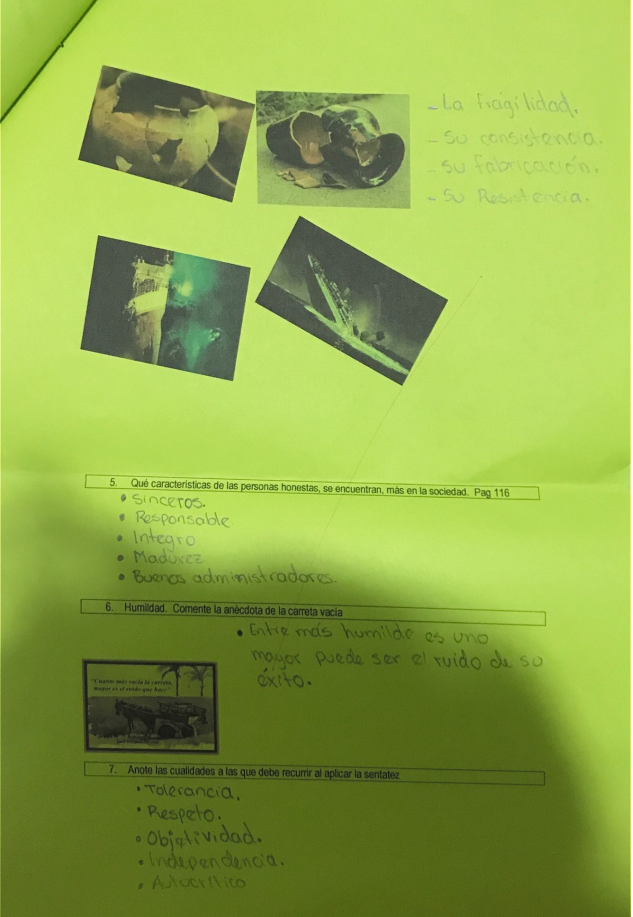 - La fragilidad.
- Su consistencia.
- su fabricación.
- Su Resistencia.
5. Qué características de las personas honestas, se encuentran, más en la sociedad. Pag 116
• Sinceros.
• Responsable
• Integro
• Madurez
• Buenos administradores.
6. Humildad. Comente la anécdota de la carreta vacía
• Entre más humilde es uno
mayor puede ser el ruido de su
éxito.
"Cuanto más vacía la carreta,
mayor es el ruido que hace"
7. Anote las cualidades a las que debe recurrir al aplicar la sentatez
• Tolerancia.
• Respeto.
• Objetividad.
• Independencia.
• Autocrítico